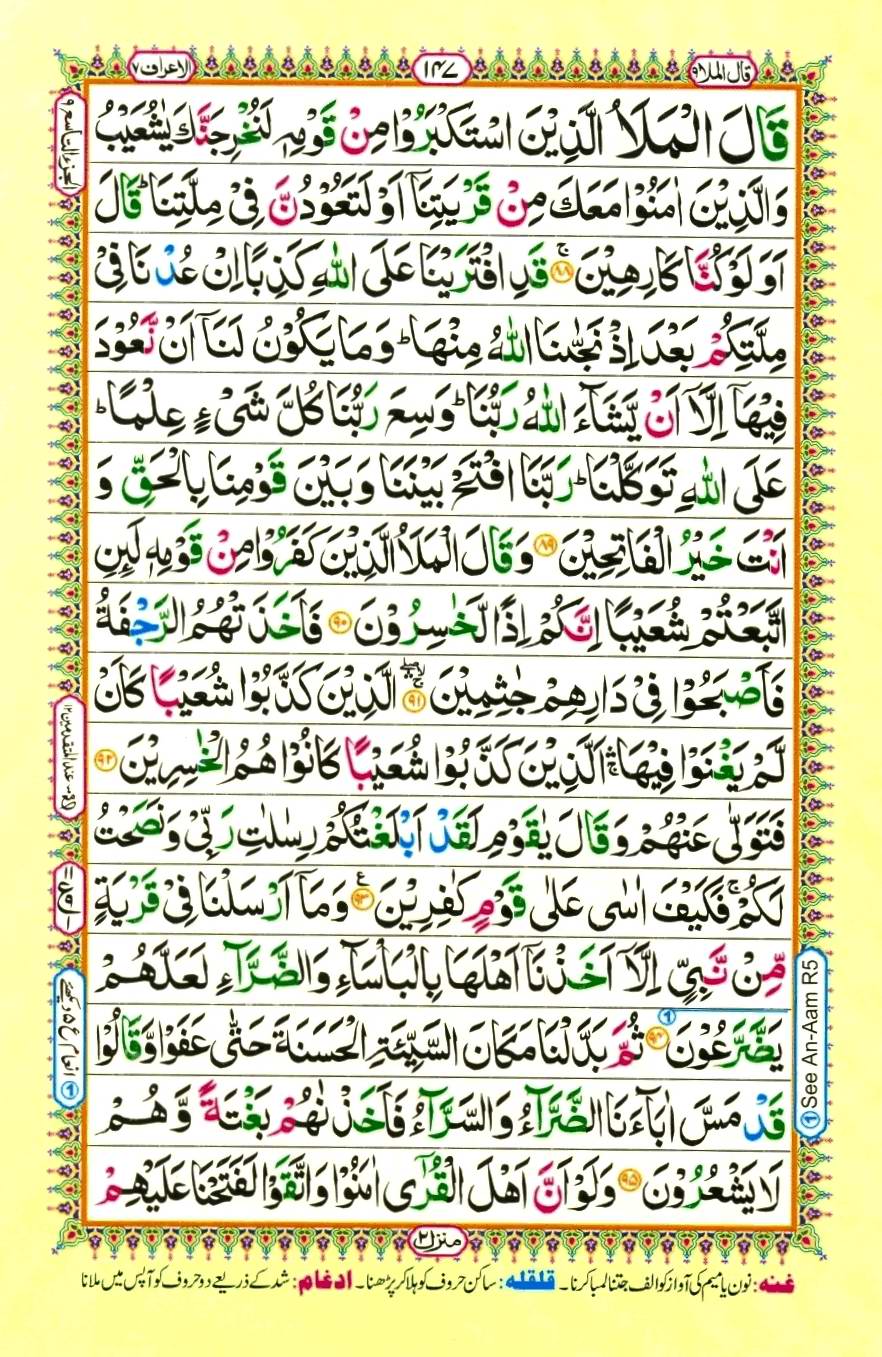 قال الملا ۹
۱۴۷
الاعراف ۷
قَالَ الْمَلَاُ الَّذِیْنَ اسْتَكْبَرُوْا مِنْ قَوْمِهٖ لَنُخْرِجَنَّكَ یٰشُعَیْبُ
وَالَّذِیْنَ اٰمَنُوْا مَعَكَ مِنْ قَرْیَتِنَاۤ اَوْ لَتَعُوْدُنَّ فِیْ مِلَّتِنَاؕ قَالَ
اَوَلَوْ كُنَّا كَارِهِیْنَۚ ۸۸ قَدِ افْتَرَیْنَا عَلَی اللّٰهِ كَذِبًا اِنْ عُدْنَا فِیْ
مِلَّتِكُمْ بَعْدَ اِذْ نَجّٰىنَا اللّٰهُ مِنْهَاؕ وَمَا یَكُوْنُ لَنَاۤ اَنْ نَّعُوْدَ
فِیْهَاۤ اِلَّاۤ اَنْ یَّشَآءَ اللّٰهُ رَبُّنَاؕ وَسِعَ رَبُّنَا كُلَّ شَیْءٍ عِلْمًاؕ
عَلَی اللّٰهِ تَوَكَّلْنَاؕ رَبَّنَا افْتَحْ بَیْنَنَا وَبَیْنَ قَوْمِنَا بِالْحَقِّ وَ
اَنْتَ خَیْرُ الْفَاتِحِیْنَ ۸۹ وَقَالَ الْمَلَاُ الَّذِیْنَ كَفَرُوْا مِنْ قَوْمِهٖ لَىِٕنِ
اتَّبَعْتُمْ شُعَیْبًا اِنَّكُمْ اِذًا لَّخٰسِرُوْنَ ۹۰ فَاَخَذَتْهُمُ الرَّجْفَةُ
فَاَصْبَحُوْا فِیْ دَارِهِمْ جٰثِمِیْنَ ۹۱ الَّذِیْنَ كَذَّبُوْا شُعَیْبًا كَاَنْ
لَّمْ یَغْنَوْا فِیْهَاۛۚ اَلَّذِیْنَ كَذَّبُوْا شُعَیْبًا كَانُوْا هُمُ الْخٰسِرِیْنَ ۹۲
فَتَوَلّٰی عَنْهُمْ وَقَالَ یٰقَوْمِ لَقَدْ اَبْلَغْتُكُمْ رِسٰلٰتِ رَبِّیْ وَنَصَحْتُ
لَكُمْۚ فَكَیْفَ اٰسٰی عَلٰی قَوْمٍ كٰفِرِیْنَ ۹۳ وَمَاۤ اَرْسَلْنَا فِیْ قَرْیَةٍ
مِّنْ نَّبِیٍّ اِلَّاۤ اَخَذْنَاۤ اَهْلَهَا بِالْبَاْسَآءِ وَالضَّرَّآءِ لَعَلَّهُمْ
یَضَّرَّعُوْنَ ۹۴ ثُمَّ بَدَّلْنَا مَكَانَ السَّیِّئَةِ الْحَسَنَةَ حَتّٰی عَفَوْا وَّقَالُوْا
قَدْ مَسَّ اٰبَآءَنَا الضَّرَّآءُ وَالسَّرَّآءُ فَاَخَذْنٰهُمْ بَغْتَةً وَّهُمْ
لَا یَشْعُرُوْنَ ۹۵ وَلَوْ اَنَّ اَهْلَ الْقُرٰۤی اٰمَنُوْا وَاتَّقَوْا لَفَتَحْنَا عَلَیْهِمْ
الجزء التاسع ۹
① انعام ع۵ دیکھئے
① See An-Aam R5
منزل ۲
غنه: نون یا میم کی آواز کو الف جتنا لمبا کرنا۔ قلقله: ساکن حروف کو ہلا کر پڑھنا۔ ادغام: شد کے ذریعے دو حروف کو آپس میں ملانا